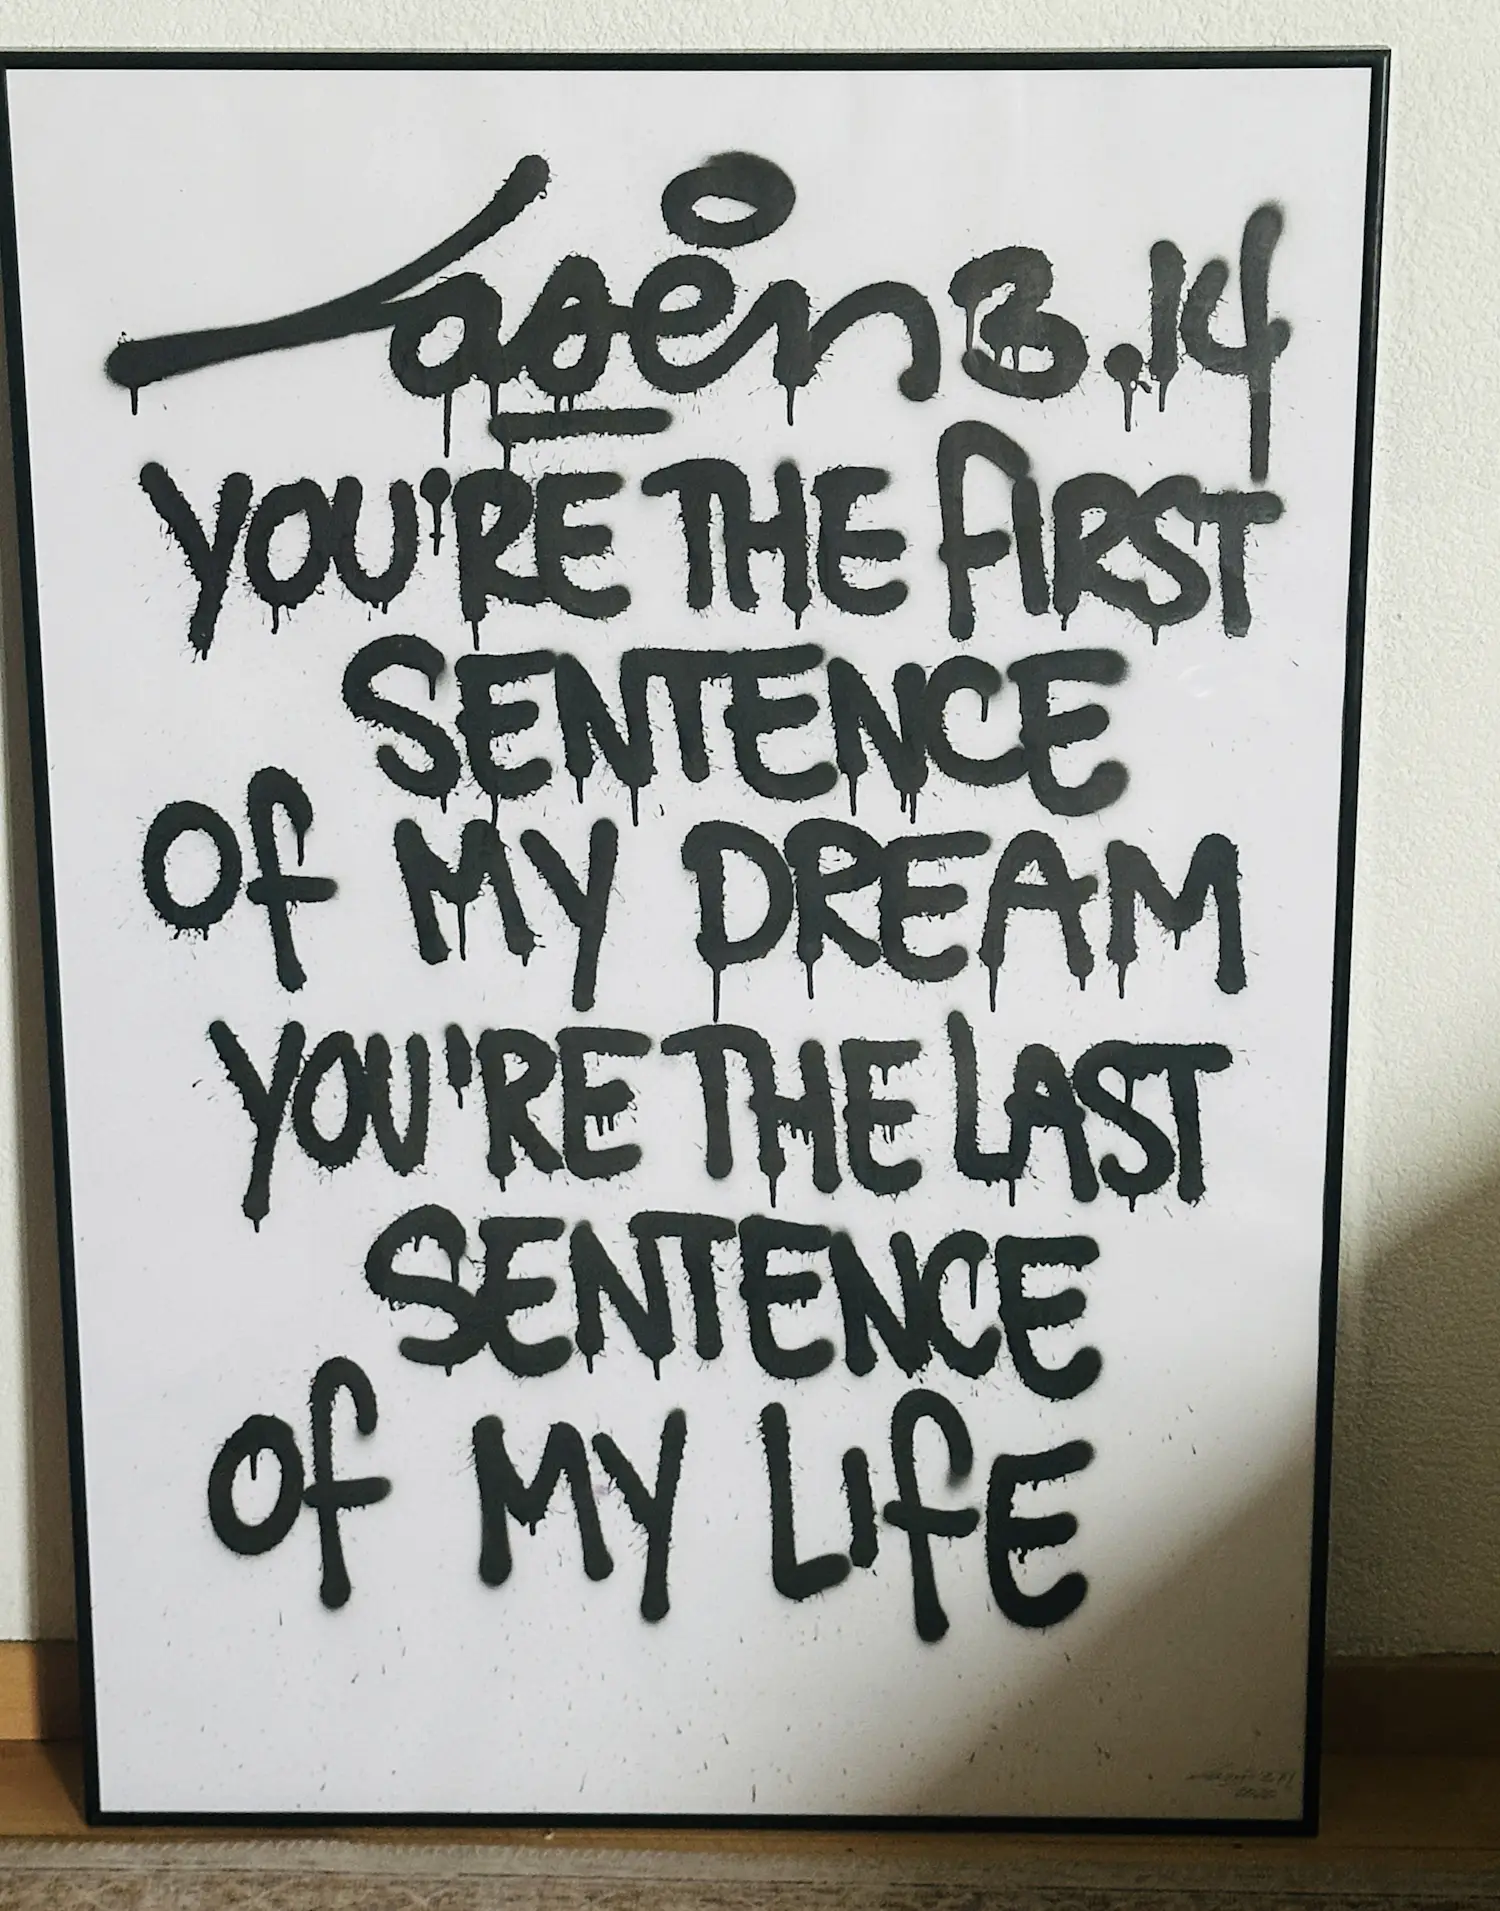 Laser 3.14
YOU'RE THE FIRST
SENTENCE
Of MY DREAM
YOU'RE THE LAST
SENTENCE
Of MY LIfE